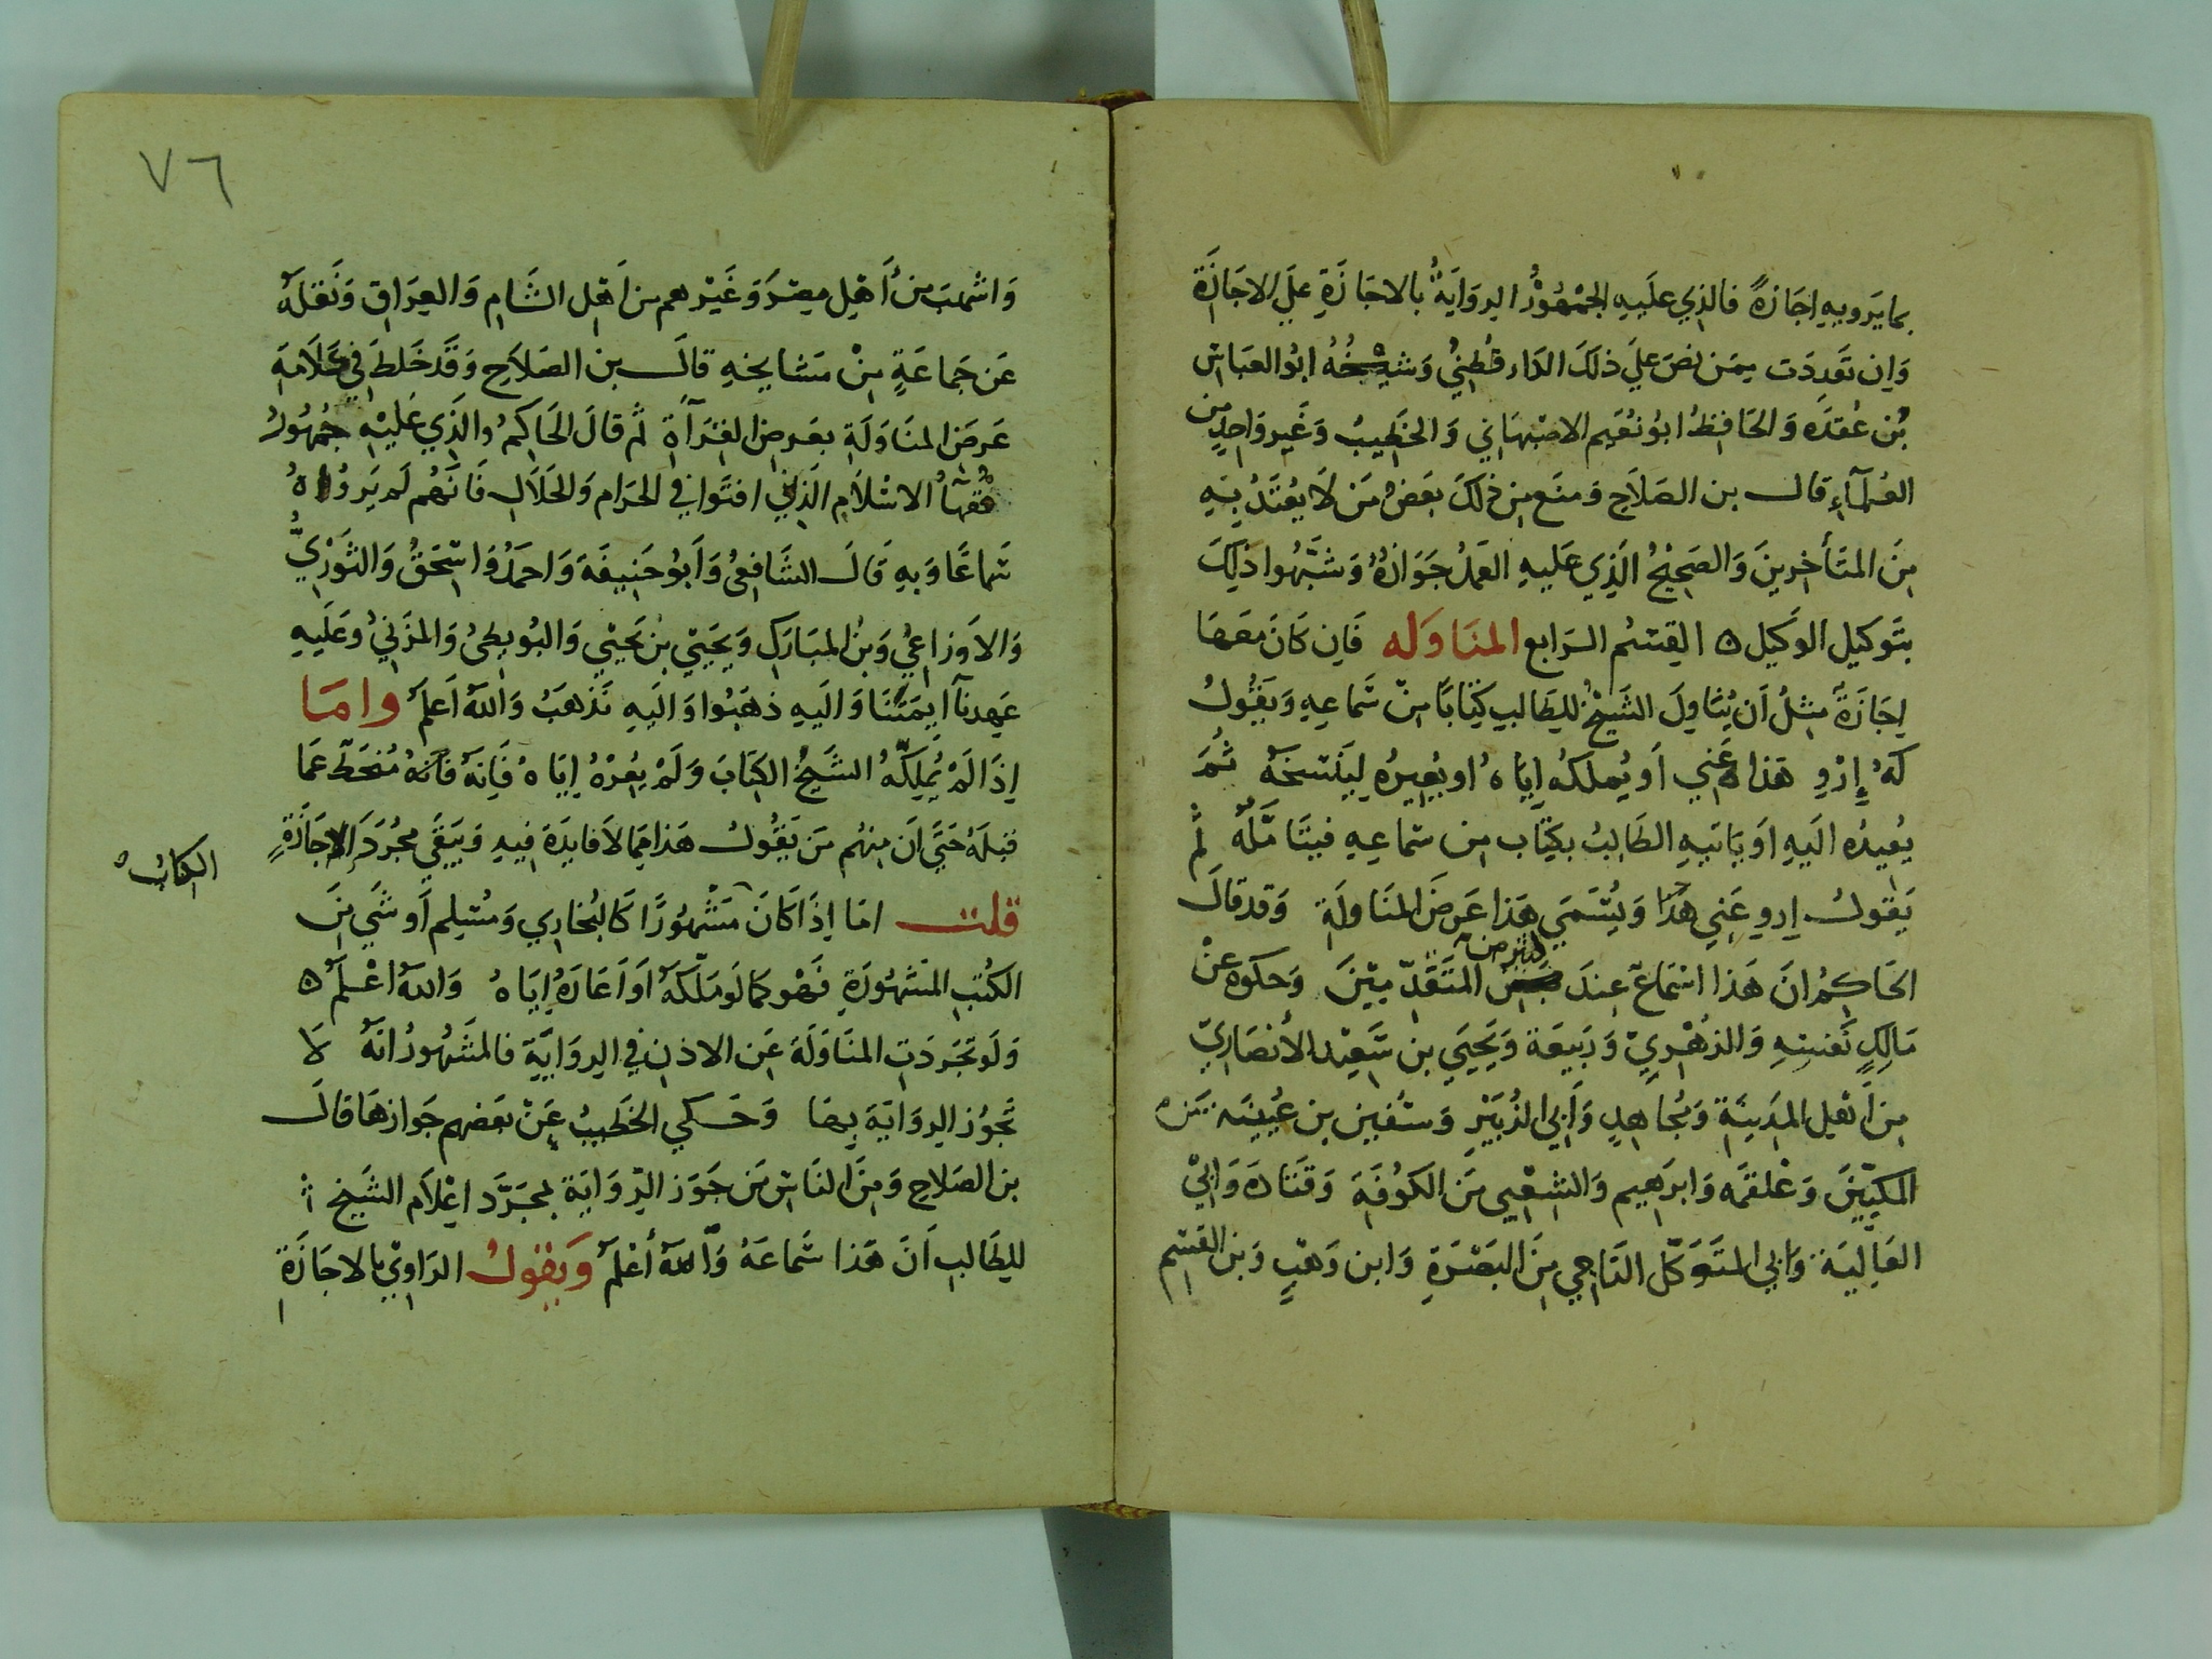 بما يَرويهِ اِجَازةً فالذِي علَيهِ الجُمْهُوْرُ الرِوَايَةُ بالاجَازَةِ علَي الاجَازَة
وَاِن تَعَدِدَت مِمَن نصَ علَي ذلكَ الدَارقُطنِيُ وَشَيْخُهُ ابُو العَبَاسْ
بُن عُقدَه وَالحَافِظُ ابُو نُعَيم الاصْبهَانيِ وَالخَطِيبُ وَغَيروَاحِدٍ من
العُلمآءِ قالـــ بن الصَلَاحِ وَمنَع مِن ذلكَ بعَضُ مَن لَا يُعْتَدُ بِهِ
مِنَ المتَأخِرينَ وَالصَحِيْحُ الَذِي عَليهِ العَملُ جَوَازُهُ وَشَبَّهُوا ذلِكَ
بتَوكيل الوَكيل ه القِسْم الـرَابع المنَاوَله فَاِن كَانَ معَهَا
اِجَازَةٌ مثِلُ اَن يُنَاوِلَ الشَيْخُ للِطَالبِ كِتَابًا مِنْ سَماعِهِ وَيَقُولُ
لهُ اِرْوِ هَذا عَنِي اَو يُملكُه اِيَاهُ او يُعِيرُه لِيَنسَخَهُ ثُمَ
يُعِيدُه الَيهِ اَو يَاتيِهِ الطَالِبُ بكِتَاب مِن سَماعِهِ فيتَامَّلُه ثُم
يَقولُ اِروِ عَنِي هَذَا وَيُسَمَي هَذا عَرضَ المنَاولَةِ وَقد قالَ
الحَاكِمُ انَ هَذا اسْمَاعٌ عِندَ كثير من المتَقَدِّمِيْنَ وَحكوه عنْ
مَالِكٍ نَفسِهِ وَالزُهْرِيّ وَرَبيعَة وَيَحيَي بن سَعِيْد الأنصَارِيّ
مِن أَهْل المَدِينَةِ وَمُجاهِدٍ وَاَبِي الزُبَيْرِ وَسُفين بن عُيَينَه مَن
المكِيّينَ وَعَلقمَه وَابرَهيم وَالشِعْبِي مَن الكُوفَةِ وَقتَادَهَ وَابِيْ
العَالِيَة وَابي المتَوَكّل النَاجِي مِنَ البَصْرَةِ وَابن وَهْبٍ وَبن القسِم
٧٦
وَاشهَب مَن أَهْلِ مِصْرَ وَغَيْرهم من اَهِل الشَام وَالعِرَاق وَنَقلَهُ
عَن جَماعَةٍ مِنْ مَشايخهِ قالـــ بن الصَلَاحِ وَقَد خَلطَ في كلَامَهِ
عَرضَ المنَاوَلَةِ بعَرضِ القرَآءَةِ ثم قالَ الحَاكِمُ والَذِي عَليْهِ جُمْهُورُ
فُقهَآُ الاسْلاَمِ الذِينَ افتَوا في الحَرَام وَالحَلَالِ فَانَهُم لَم يَروُاهُ
سَماعًا وَبهِ قَالَـ الشَافِعيُ وَاَبُو حَنِيفَةَ وَاحمَدُ وَاسْحَقُ وَالثَوْرِيُّ
وَالاَوزاعِيُ وَبنُ المبَارَكِ وَيَحيَي بن يَحيي وَالبُوَيطِيُ وَالمزَنيُ وَعَلَيهِ
عَهِدنَآ اَيمَتَنَا وَاليَهِ ذهَبُوا وَاليَهِ نَذهَبُ وَاللهُ اَعلمُ وامَا
اِذَا لَمْ يُملِكّهُ الشَيخُ الكِتَابَ وَلَمْ يُعِرْهُ اِيَاهُ فَاِنهُ فَاَنهُ مُنحَطٌ عَما
قَبلَهُ حَتَي اَن مِنهُم مَن يَقُولُ هَذا مِمَا لاَ فايِدَة فِيهِ وَيَبقَي مجُرَدَ الاِجَازَةِ
الكتاب ه
قلتــ امَا اِذَا كَانَ مَشْهُورًا كَالبُخَارِي وَمُسْلِم اَو شَي مِنَ
الكُتبِ المَشهُورَةِ فَهْو كمَا لَو مَلّكهُ اَو اَعَارَهُ اِيَاهُ وَاللهُ اعْلَمُ ه
وَلَو تجَردَتِ المنَاوَلَةَ عَنِ الاذن في الرِوَايَةِ فالمَشَهُورُ انَهُ لَا
تَجَوُز الرِوَايَةَ بِهَا وَحَــكي الخَطيبُ عَنْ بَعَضهِم جَوازهَا قالَــ
بن الصَلاحِ وَمِنَ النَاسِ مَن جَوَز الرّوَايَة بمجَرَّد اِعْلاَم الشَيخ
للِطَالبِ اَنَ هَذا سَماعَهُ وَاَللهُ أعلَمُ وَيقولُ الرَاوِيْ بالاجَازَةِ